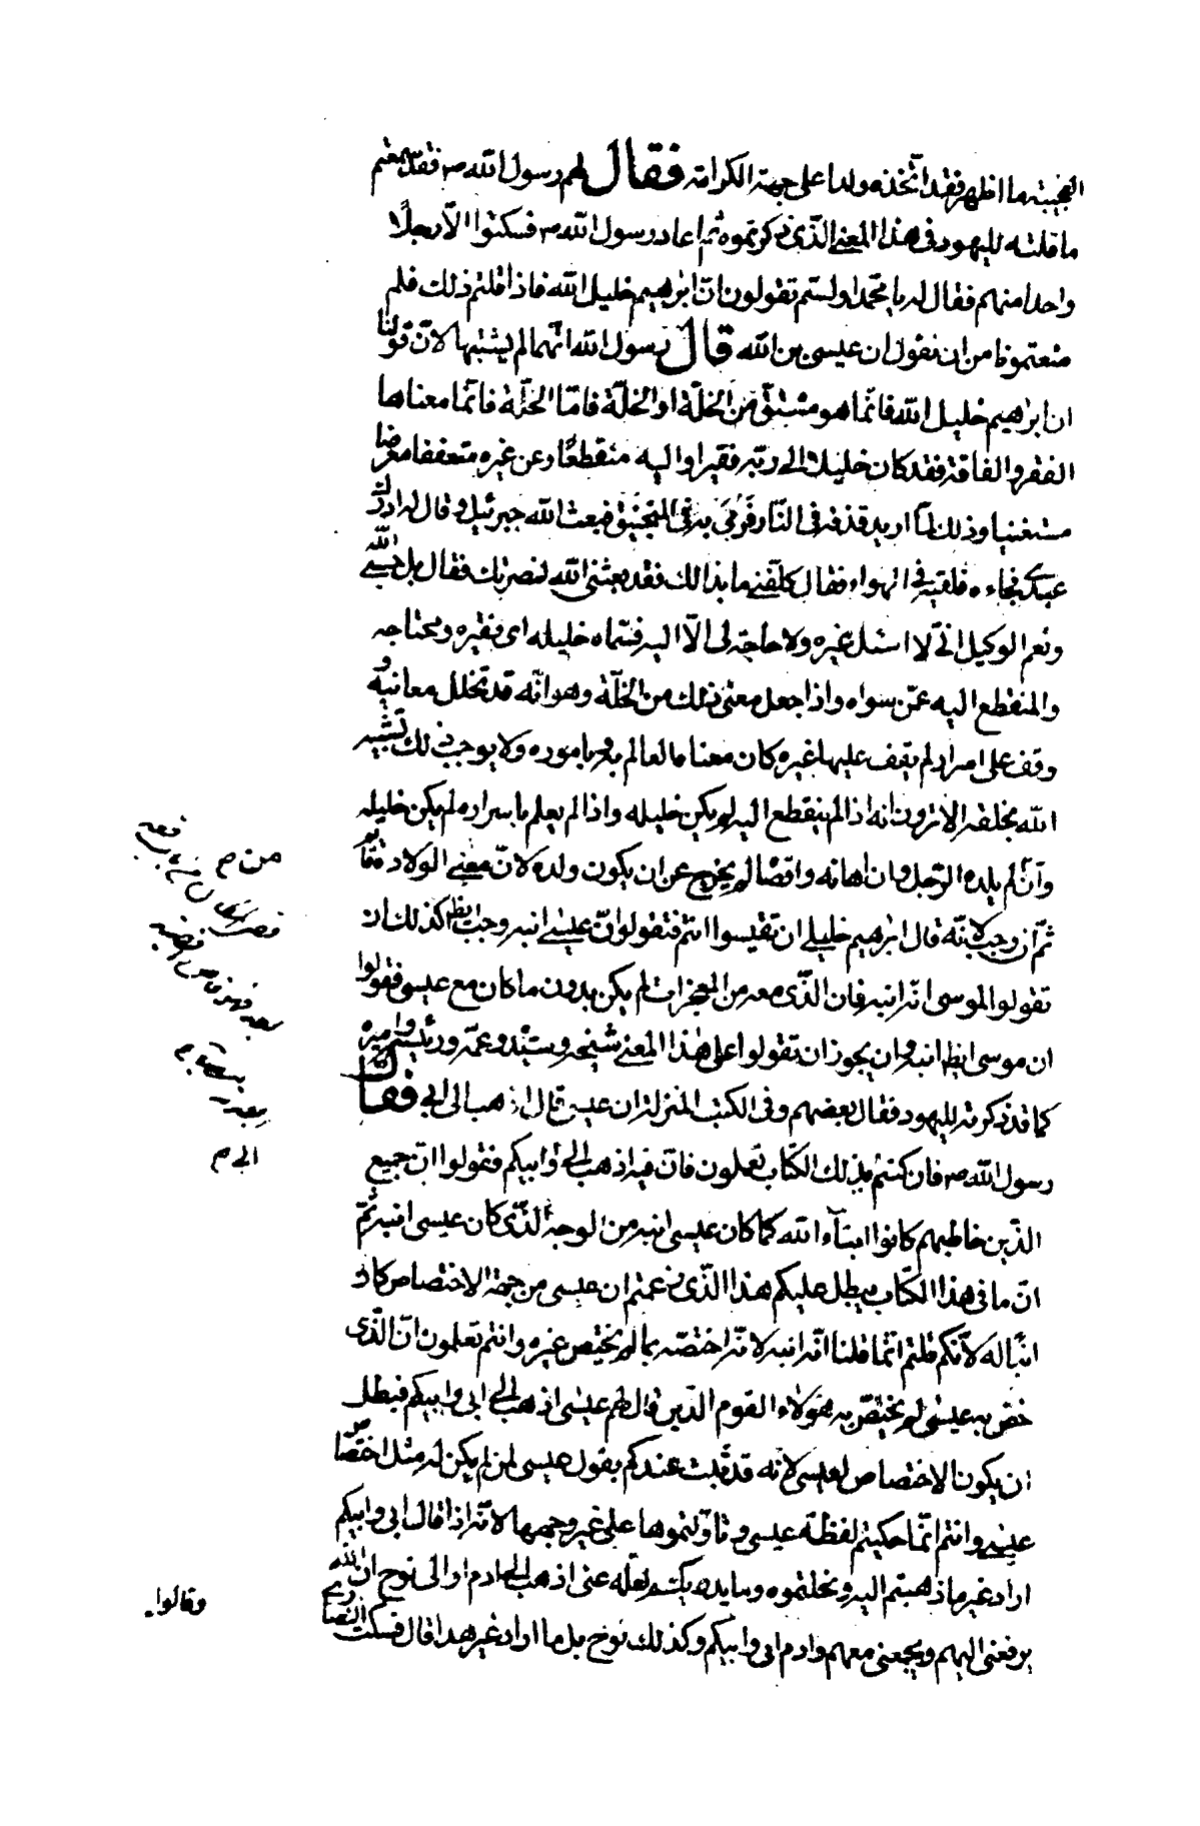 العجيبة ما اظهر فقد اتخذه ولدا على جهة الكرامة فقال لهم رسول الله ص فقد سمعتم
ما قلته لليهود فى هذا المعنى الذى ذكرتموه ثم اعاد رسول الله ص فسكتوا الا رجلا
واحدا منهم فقال له يا محمد اولستم تقولون ان ابرهيم خليل الله فاذا قلتم ذلك فلم
منعتمونا من ان نقول ان عيسى بن الله قال رسول الله انهما لم يشتبها لان قولنا
ان ابرهيم خليل الله فانما هو مشتق من الخلة او الخلة فاما الخلة فانما معناها
الفقر والفاقة فقد كان خليلا الى ربه فقيرا واليه منقطعا وعن غيره متعففا معرضا
مستغنيا وذلك لما اريد قذفه فى النار فرمى به فى المنجنيق فبعث الله جبرئيل وقال له ادرك
عبدى فجاءه فلقيه فى الهواء فقال كلفنى ما بدا لك فقد بعثنى الله لنصرتك فقال بل حسبى الله
ونعم الوكيل انى لا اسئل غيره ولا حاجة لى الا اليه فسماه خليله اى فقيره ومحتاجه
والمنقطع اليه عمن سواه واذا جعل معنى ذلك من الخلة وهو انه قد تخلل معانيه و
وقف على اسرار لم يقف عليها غيره كان معناه العالم به وباموره ولا يوجب ذلك تشبيه
الله بخلقه الا ترون انه اذا لم ينقطع اليه لم يكن خليله واذا لم يعلم باسراره لم يكن خليله
وان لم يلده الرجل وان اهانه واقصاه لم يخرج عن ان يكون ولده لان معنى الولادة قائم
ثم ان وجب لانه قال ابرهيم خليلى ان تقيسوا انتم فتقولوا ان عيسى ابنه وجب ايظ كذلك ان
تقولوا لموسى انه ابنه فان الذى معه من المعجزات لم يكن بدون ما كان مع عيسى فقولوا
ان موسى ايظ ابنه وان يجوز ان تقولوا على هذا المعنى شيخه وسيده وعمه ورئيسه واميره
كما قد ذكرته لليهود فقال بعضهم وفى الكتب المنزلة ان عيسى قال اذهب الى ابى فقال
رسول الله ص فان كنتم بذلك الكتاب تعملون فان فيه اذهب الى ابى وابيكم فقولوا ان جميع
الذين خاطبهم كانوا ابناء الله كما كان عيسى ابنه من الوجه الذى كان عيسى ابنه ثم
ان ما فى هذا الكتاب يبطل عليكم هذا الذى زعمتم ان عيسى من جهة الاختصاص كان
ابنا له لانكم قلتم انما قلنا انه ابنه لانه اختصه بما لم يختص غيره وانتم تعلمون ان الذى
خص به عيسى لم يختص به هؤلاء القوم الذين قال لهم عيسى اذهب الى ابى وابيكم فبطل
ان يكون الاختصاص لعيسى لانه قد ثبت عندكم بقول عيسى لمن لم يكن له مثل اختصاص
عيسى وانتم انما حكيتم لفظة عيسى وتاولتموها على غير وجهها لانه اذا قال ابى وابيكم
اراد غير ما ذهبتم اليه ونحلتموه وما يدريكم لعله عنى اذهب الى ادم او الى نوح ان الله
يرفعنى اليهم ويجمعنى معهم وادم ابى وابيكم وكذلك نوح بل ما اراد غير هذا قال فسكت النصارى
من م
الى م
وقالوا